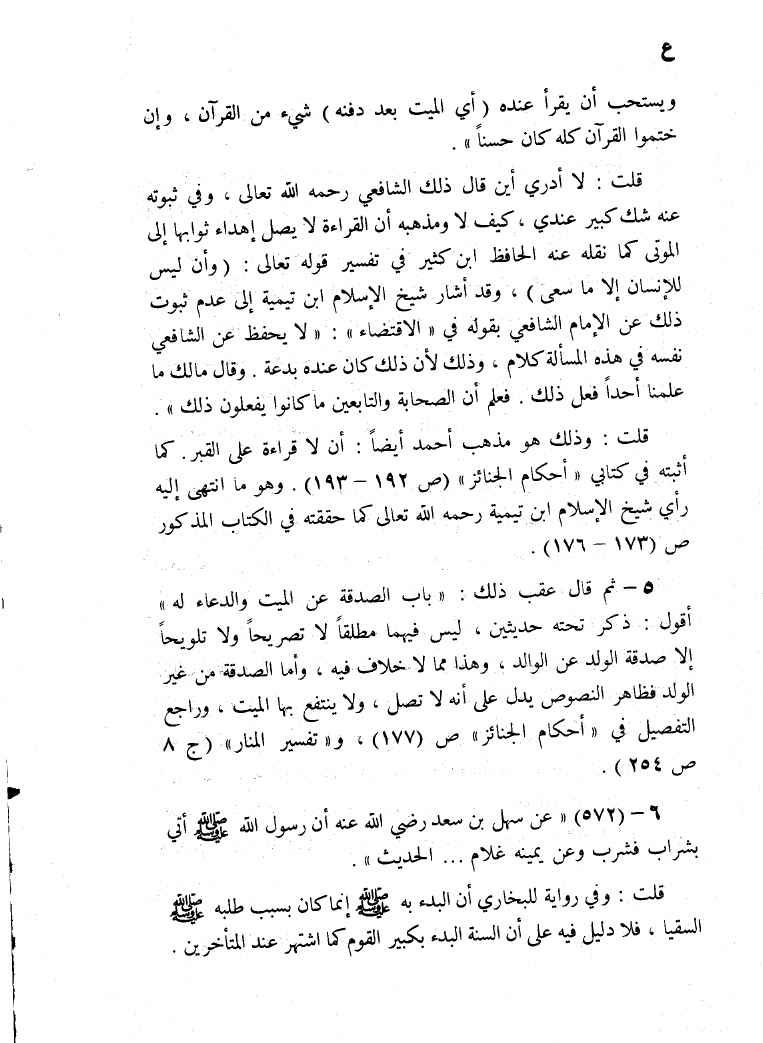 ع
ويستحب أن يقرأ عنده ( أي الميت بعد دفنه ) شيء من القرآن ، وإن
ختموا القرآن كله كان حسناً » .
قلت : لا أدري أين قال ذلك الشافعي رحمه الله تعالى ، وفي ثبوته
عنه شك كبير عندي ، كيف لا ومذهبه أن القراءة لا يصل إهداء ثوابها إلى
الموتى كما نقله عنه الحافظ ابن كثير في تفسير قوله تعالى : ( وأن ليس
للإنسان إلا ما سعى ) ، وقد أشار شيخ الإسلام ابن تيمية إلى عدم ثبوت
ذلك عن الإمام الشافعي بقوله في « الاقتضاء » : « لا يحفظ عن الشافعي
نفسه في هذه المسألة كلام ، وذلك لأن ذلك كان عنده بدعة . وقال مالك ما
علمنا أحداً فعل ذلك . فعلم أن الصحابة والتابعين ما كانوا يفعلون ذلك » .
قلت : وذلك هو مذهب أحمد أيضاً : أن لا قراءة على القبر . كما
أثبته في كتابي « أحكام الجنائز » (ص ١٩٢ – ١٩٣) . وهو ما انتهى إليه
رأي شيخ الإسلام ابن تيمية رحمه الله تعالى كما حققته في الكتاب المذكور
ص (١٧٣ – ١٧٦) .
٥ – ثم قال عقب ذلك : « باب الصدقة عن الميت والدعاء له »
أقول : ذكر تحته حديثين ، ليس فيهما مطلقاً لا تصريحاً ولا تلويحاً
إلا صدقة الولد عن الوالد ، وهذا مما لا خلاف فيه ، وأما الصدقة من غير
الولد فظاهر النصوص يدل على أنه لا تصل ، ولا ينتفع بها الميت ، وراجع
التفصيل في « أحكام الجنائز» ص (١٧٧) ، و« تفسير المنار» (ج ٨
ص ٢٥٤ ) .
٦ – (٥٧٢) « عن سهل بن سعد رضي الله عنه أن رسول الله ﷺ أتي
بشراب فشرب وعن يمينه غلام ... الحديث » .
قلت : وفي رواية للبخاري أن البدء به ﷺ إنما كان بسبب طلبه ﷺ
السقيا ، فلا دليل فيه على أن السنة البدء بكبير القوم كما اشتهر عند المتأخرين .